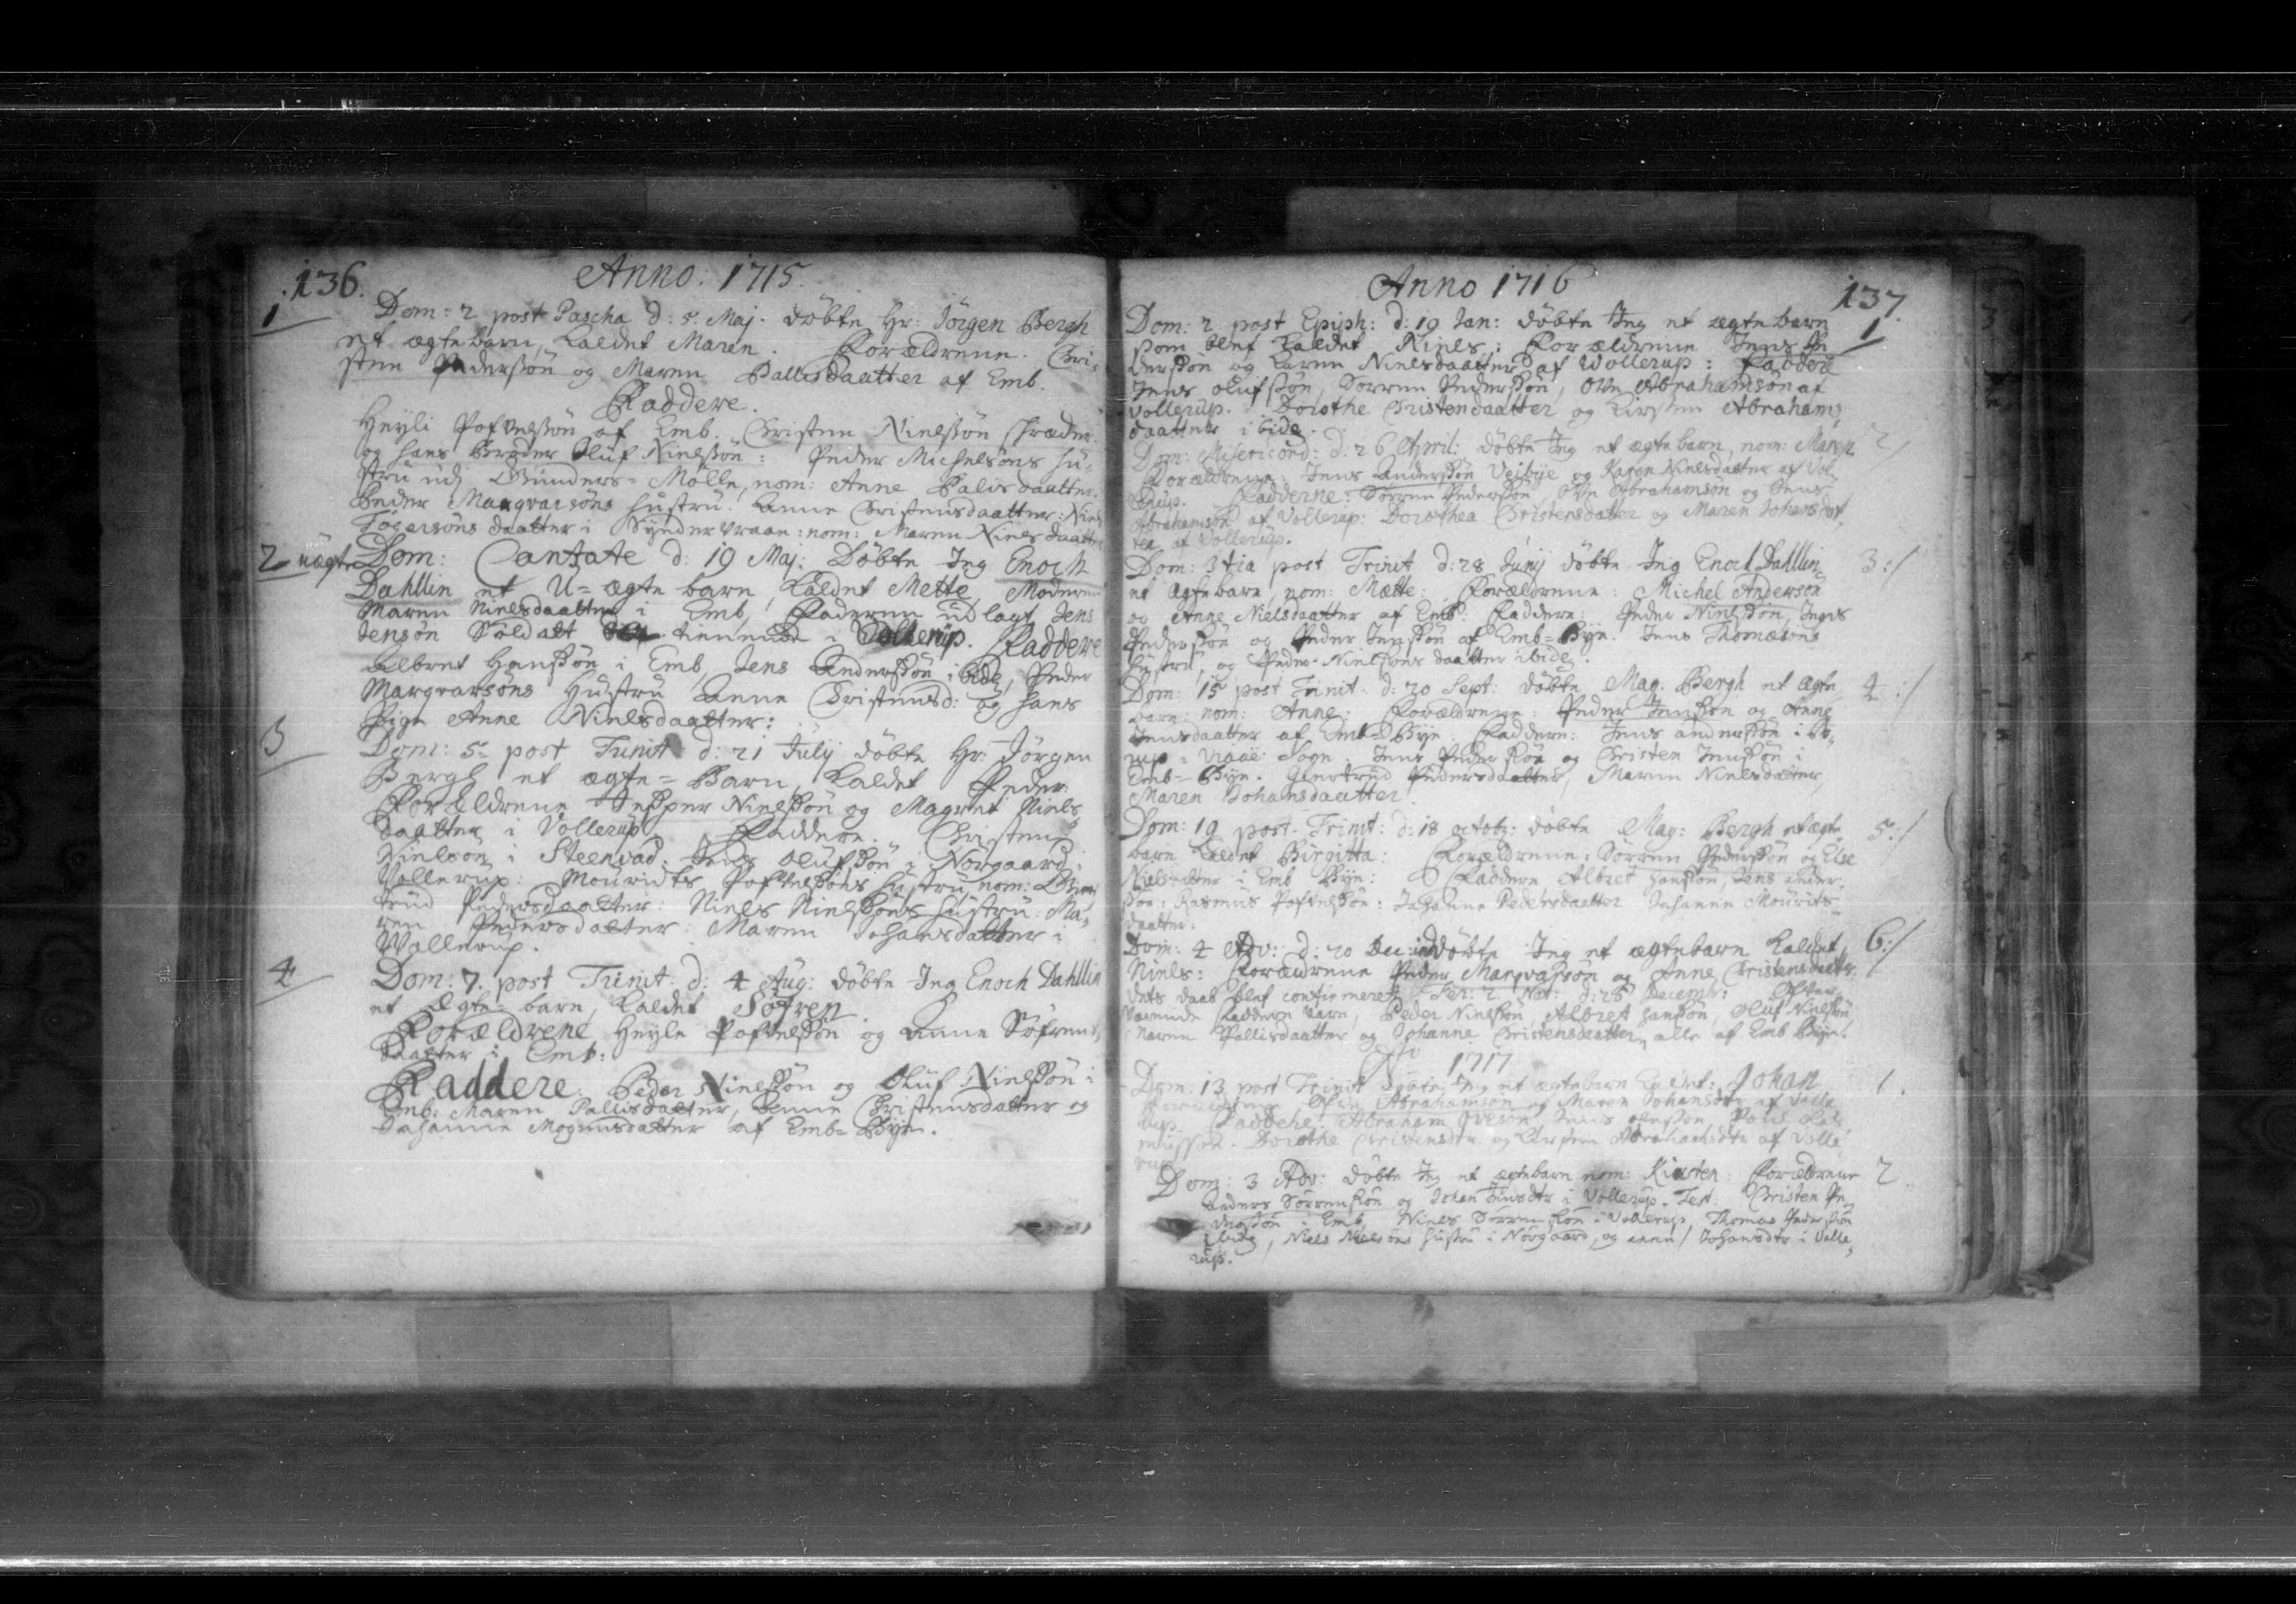 136.
Anno. 1715.
1
Dom: 2 post Pascha d: 5. Maj. döbte Hr: Jörgen Bergh
et ægte barn, kaldet Maren. Forældrene. Chri-
sten Pedersøn og Maren Pallisdaatter af Emb.
Faddere.
Heyli Pofvelsøn af Emb. Christen Nielsøn
og hans Broder Oluf Nielsøn: Peder Michelsøns Hu-
stru udj Gunders-Mölle, nom: Anne Palisdaatter.
Peder Marqvarsøns Hustru. Anne Christensdaatter: Niels
daatter i Synder vraae: nom: Maren Nielsdaatter
2 uægte
Dom: Cantate d: 19 Maj: Döbte Jeg Enoch
Dahllin et U-ægte barn, kaldet Mette, Moderen
Maren Nielsdaatter i Emb, Faderen udlagt Jens
Jensøn Soldat tienende i Vollerup. Faddere
Albret Hansøn i Emb Jens Andersøn ibid, Peder
Marqvarsøns Hustru Anne Christensd: og hans
Pige Anne Nielsdaatter:
3
Dom: 5 post Trinit d: 21 Julij döbte Hr: Jörgen
Bergh et ægte-Barn, kaldet Peder.
Forældrene Jesper Nielsøn og Magret Niels-
daatter i Vollerup. Faddere. Christen
Nielsøn i Steenvad. Jens Olufsøn i Norgaard i
Vollerup: Mouridts Pofvelsøns Hustru, nom:
trud Pedersdaatter: Niels Nielsøns Hustru: Ma-
ren Pedersdatter: Maren Johansdatter i
Wollerup.
4
Dom: 7. post Trinit: d: 4 Aug: döbte Jeg Enoch Dahllin
et ægte barn, kaldet Söfren
Forældrene Heyle Pofvelsøn og Anne Söfrens-
daatter i Emb:
Faddere. Peder Nielsøn og Oluf Nielsøn i
Emb: Maren Pallisdatter, Anne Christensdatter og
Johanne Mogensdatter af Emb-Bye.
137.
Anno 1716
Dom: 2 post Epiph: d: 19 Jan: döbte Jeg et ægte barn
1
som blef kaldet Niels: Forældrene Jens Pe
dersøn og Karen Nielsdaatter af Wollerup: Faddere
Jens Olufsøn, Sörren Pedersøn, Ove Abrahamsøn af
Vollerup. Dorothe Christensdaatter og Kirsten Abrahams
daatter ibid.
Dom: Misericord: d: 26 April: döbte Jeg et ægte barn, nom: Maren
2
Forældrene. Jens Andersøn Vejbye og Karen Nielsdatter af Vol-
lerup. Fadderne: Sörren Pedersøn, Ove Abrahamsøn og Jens
Abrahamsøn af Vollerup: Dorothea Christensdatter og Maren Johansdat-
ter af Vollerup.
Dom: 3tia post Trinit d: 28 Junij döbte Jeg Enoch Dahllin
3
et ægte barn, nom: Mætte: Forældrene: Michel Andersøn
og Anne Nielsdaatter af Emb: Faddere: Peder Nielsøn, Jens
Pedersøn og Peder Jensøn af Emb-Bye. Jens Thomasøns
Hustru, og Peder Nielsøns daatter ibid.
Dom: 15 post Trinit: d: 20 Sept: döbte Mag. Bergh et ægte
4
barn: nom: Anne: Forældrene: Peder Jensøn og Anne
Jensdaatter af Emb-Bye. Faddere: Jens Andersøn i
rup i Sogn. Jens Pedersøn og Christen Jensøn i
Emb-Bye. Giertrud Pedersdaatter, Maren Nielsdatter,
Maren Johansdaatter.
Dom: 19 post Trinit: d: 18 octobr: döbte Mag: Bergh et ægte
5
barn kaldet Birgitta: Forældrene: Sörren Pedersøn og Else
Nielsdatter i Emb Bye: Faddere Albret Hansøn, Jens Ander-
søn: Rasmus Pofvelsøn: Johanne Pedersdaatter Johanne Mourits-
daatter:
Dom: 4 Adv: d: 20 Dec: döbte Jeg et ægte barn kaldet
6
Niels: Forældrene Peder Marqvarsøn og Anne Christensdaatter.
dets daab blef confirmeret Fer: 2 Nat: d: 26 Decembr:
værende Faddere vare, Peder Nielsøn, Albret Hansøn, Oluf Nielsøn
Maren Pallisdaatter og Johanne Christensdaatter, alle af Emb Bye.
Ao 1717
Dom: 13 post Trinit döbte Jeg et ægtebarn kaldet: Johan
1.
Forældrene Abrahamsøn og Maren Johansdtr af Volle
rup. Faddere. Abraham Ovesøn Jens Olufsøn Poul Ras-
mussøn. Dorothe Christensdtr og Kirsten Abrahamsdtr af Volle
rup
Dom: 3 Adv: döbte Jeg et ægtebarn nom: Kirsten: Forældrene
2
Anders Sörrensøn og Johan Jensdtr i Vollerup. Test: Christen Pe-
dersøn i Emb, Niels Sörrensøn i Vollerup, Thomas Pedersøn
ibid, Niels Nielsøns Hustru i Norgaard, og Anne Johansdtr i Volle-
rup.